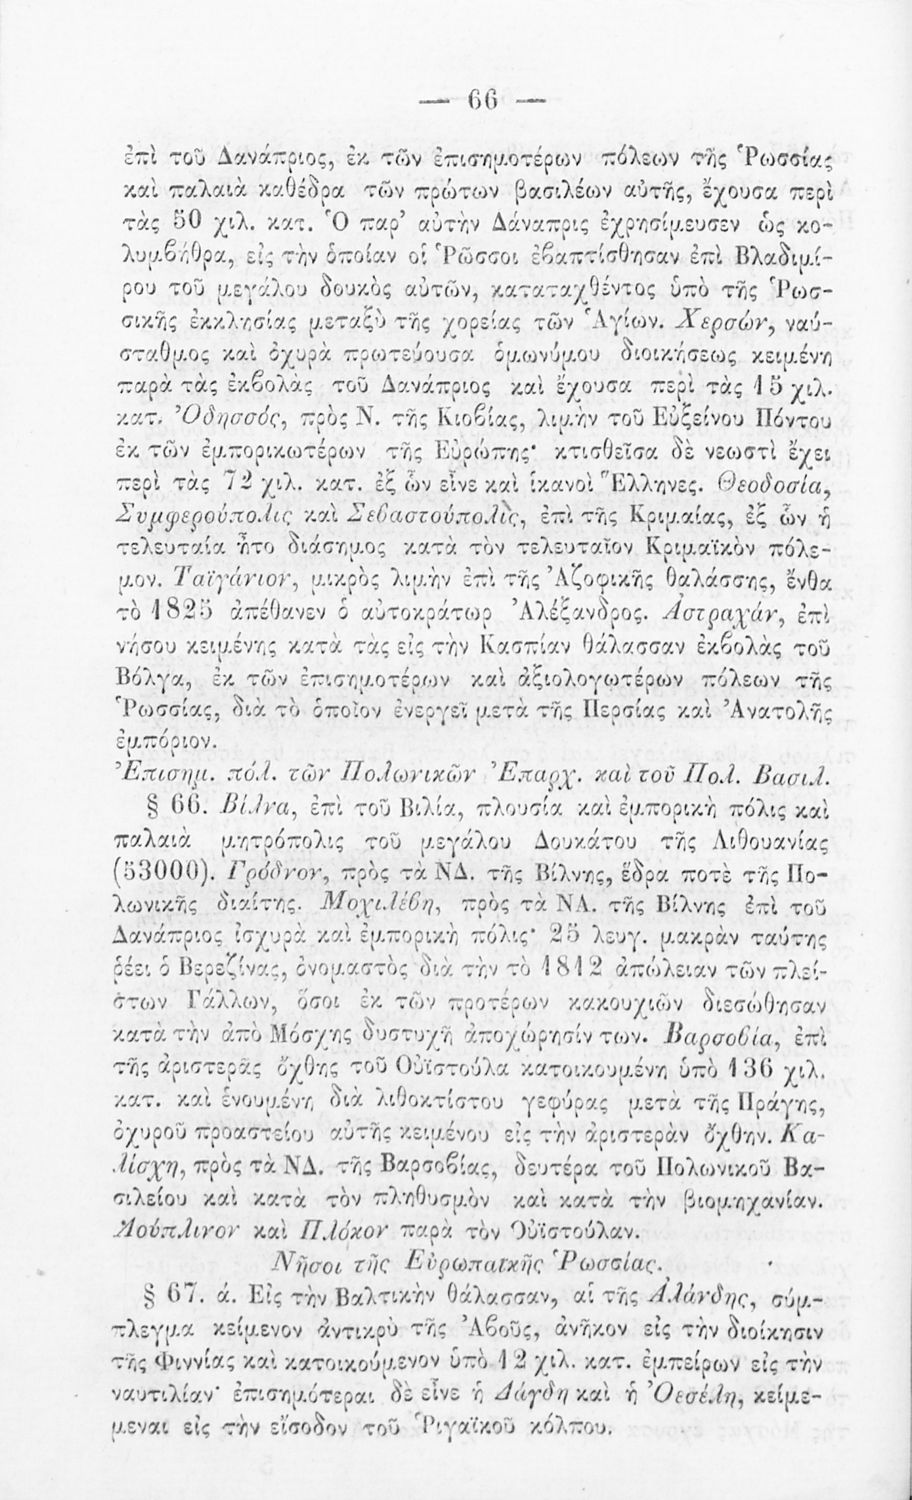 — 66 —
ἐπὶ τοῦ Δανάπριος, ἐκ τῶν ἐπισημοτέρων πόλεων τῆς Ῥωσσίας
καὶ παλαιὰ καθέδρα τῶν πρώτων βασιλέων αὐτῆς, ἔχουσα περὶ
τὰς 50 χιλ. κατ. Ὁ παρ’ αὐτὴν Δάναπρις ἐχρησίμευσεν ὡς κο-
λυμβήθρα, εἰς τὴν ὁποίαν οἱ Ῥῶσσοι ἐβαπτίσθησαν ἐπὶ Βλαδιμί-
ρου τοῦ μεγάλου δουκὸς αὐτῶν, καταταχθέντος ὑπὸ τῆς Ῥωσ-
σικῆς ἐκκλησίας μεταξὺ τῆς χορείας τῶν Ἁγίων. Χερσών, ναύ-
σταθμος καὶ ὀχυρὰ πρωτεύουσα ὁμωνύμου διοικήσεως κειμένη
παρὰ τὰς ἐκβολὰς τοῦ Δανάπριος καὶ ἔχουσα περὶ τὰς 15 χιλ.
κατ. Ὀδησσός, πρὸς Ν. τῆς Κιοβίας, λιμὴν τοῦ Εὐξείνου Πόντου
ἐκ τῶν ἐμπορικωτέρων τῆς Εὐρώπης· κτισθεῖσα δὲ νεωστὶ ἔχει
περὶ τὰς 72 χιλ. κατ. ἐξ ὧν εἶνε καὶ ἱκανοὶ Ἕλληνες. Θεοδοσία,
Συμφερούπολις καὶ Σεβαστούπολις, ἐπὶ τῆς Κριμαίας, ἐξ ὧν ἡ
τελευταία ἦτο διάσημος κατὰ τὸν τελευταῖον Κριμαϊκὸν πόλε-
μον. Ταϊγάνιον, μικρὸς λιμὴν ἐπὶ τῆς Ἀζοφικῆς θαλάσσης, ἔνθα
τὸ 1825 ἀπέθανεν ὁ αὐτοκράτωρ Ἀλέξανδρος. Ἀστραχάν, ἐπὶ
νήσου κειμένης κατὰ τὰς εἰς τὴν Κασπίαν θάλασσαν ἐκβολὰς τοῦ
Βόλγα, ἐκ τῶν ἐπισημοτέρων καὶ ἀξιολογωτέρων πόλεων τῆς
Ῥωσσίας, διὰ τὸ ὁποῖον ἐνεργεῖ μετὰ τῆς Περσίας καὶ Ἀνατολῆς
ἐμπόριον.
Ἐπισημ. πόλ. τῶν Πολωνικῶν Ἐπαρχ. καὶ τοῦ Πολ. Βασιλ.
§ 66. Βίλνα, ἐπὶ τοῦ Βιλία, πλουσία καὶ ἐμπορικὴ πόλις καὶ
παλαιὰ μητρόπολις τοῦ μεγάλου Δουκάτου τῆς Λιθουανίας
(53000). Γρόδνον, πρὸς τὰ ΝΔ. τῆς Βίλνης, ἕδρα ποτὲ τῆς Πο-
λωνικῆς διαίτης. Μοχιλέβη, πρὸς τὰ ΝΑ. τῆς Βίλνης ἐπὶ τοῦ
Δανάπριος ἰσχυρὰ καὶ ἐμπορικὴ πόλις· 25 λευγ. μακρὰν ταύτης
ῥέει ὁ Βερεζίνας, ὀνομαστὸς διὰ τὴν τὸ 1812 ἀπώλειαν τῶν πλεί-
στων Γάλλων, ὅσοι ἐκ τῶν προτέρων κακουχιῶν διεσώθησαν
κατὰ τὴν ἀπὸ Μόσχης δυστυχῆ ἀποχώρησίν των. Βαρσοβία, ἐπὶ
τῆς ἀριστερᾶς ὄχθης τοῦ Οὐϊστούλα κατοικουμένη ὑπὸ 136 χιλ.
κατ. καὶ ἑνουμένη διὰ λιθοκτίστου γεφύρας μετὰ τῆς Πράγης,
ὀχυροῦ προαστείου αὐτῆς κειμένου εἰς τὴν ἀριστερὰν ὄχθην. Κα-
λίσχη, πρὸς τὰ ΝΔ. τῆς Βαρσοβίας, δευτέρα τοῦ Πολωνικοῦ Βα-
σιλείου καὶ κατὰ τὸν πληθυσμὸν καὶ κατὰ τὴν βιομηχανίαν.
Λούπλινον καὶ Πλόκον παρὰ τὸν Οὐϊστούλαν.
Νῆσοι τῆς Εὐρωπαϊκῆς Ῥωσσίας.
§ 67. ά. Εἰς τὴν Βαλτικὴν θάλασσαν, αἱ τῆς Ἀλάνδης, σύμ-
πλεγμα κείμενον ἀντικρὺ τῆς Ἀβοῦς, ἀνῆκον εἰς τὴν διοίκησιν
τῆς Φιννίας καὶ κατοικούμενον ὑπὸ 12 χιλ. κατ. ἐμπείρων εἰς τὴν
ναυτιλίαν· ἐπισημότεραι δὲ εἶνε ἡ Δάγδη καὶ ἡ Ὀεσέλη, κείμε-
μεναι εἰς τὴν εἴσοδον τοῦ Ῥιγαϊκοῦ κόλπου.